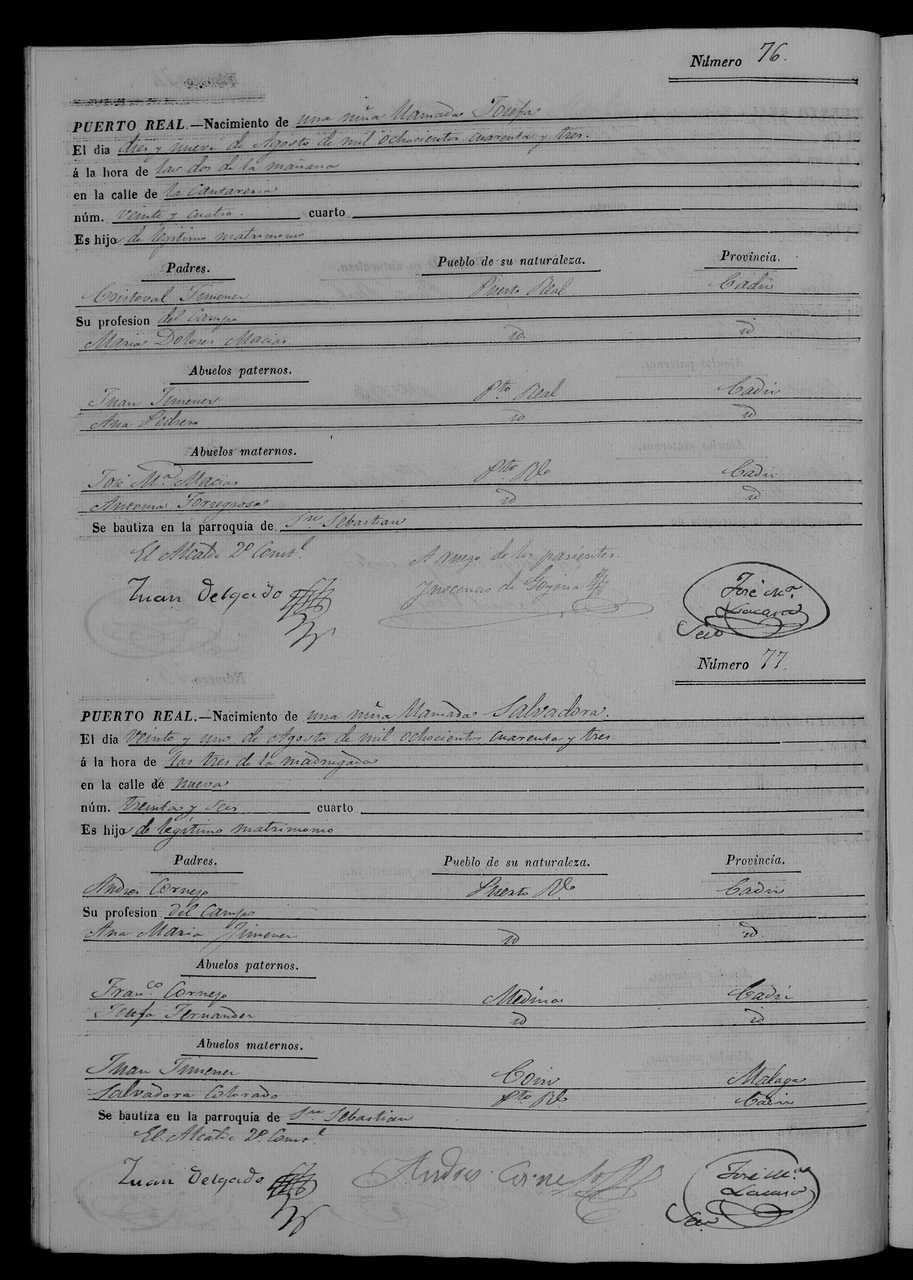 Número 76.
PUERTO REAL.—Nacimiento de una niña llamada Josefa
El dia diez y nueve de Agosto de mil ochocientos cuarenta y tres.
á la hora de las dos de la mañana
en la calle de la Cantarería
núm. veinte y cuatro. cuarto
Es hijo de lejitimo matrimonio
Padres. Pueblo de su naturaleza. Provincia.
Cristoval Jimenez Puerto Real Cadiz
Su profesion del Campo
Maria Dolores Macias id id
Abuelos paternos.
Juan Jimenez Pto Real Cadiz
Ana id id
Abuelos maternos.
José Ma Macias Pto Rl Cadiz
Antonia Torregrosa id id
Se bautiza en la parroquia de Sn Sebastian
El Alcalde 2º Consl.
A ruego de los parientes
Juan Delgado
José Ma.
Srio
Número 77.
PUERTO REAL.—Nacimiento de una niña llamada Salvadora.
El dia veinte y uno de Agosto de mil ochocientos cuarenta y tres
á la hora de las tres de la madrugada
en la calle de nueva
núm. treinta y seis cuarto
Es hijo de legitimo matrimonio
Padres. Pueblo de su naturaleza. Provincia.
Andres Cornejo Puerto Rl Cadiz
Su profesion del Campo
Ana Maria Jimenez id id
Abuelos paternos.
Franco. Cornejo Medina Cadiz
Josefa Fernandez id id
Abuelos maternos.
Juan Jimenez Coin Malaga
Salvadora Colorado Pto Rl Cadiz
Se bautiza en la parroquia de Sn Sebastian
El Alcalde 2º Consl.
Juan Delgado Andres Cornejo José Ma
Srio